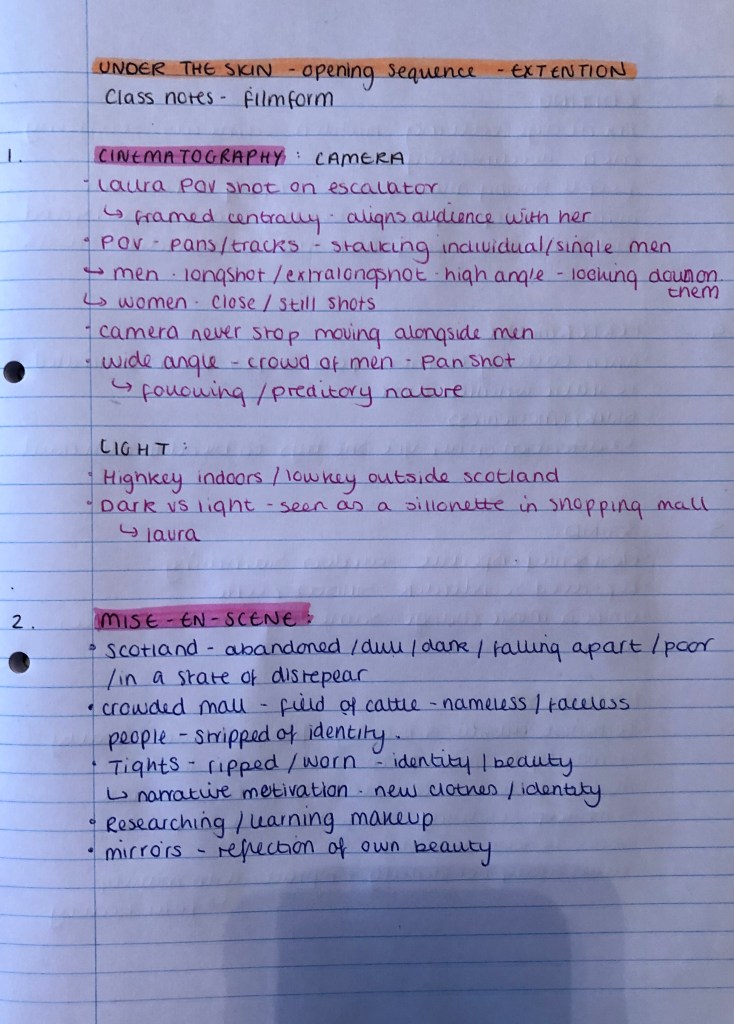 UNDER THE SKIN - opening sequence - EXTENTION
Class notes - filmform
1. CINEMATOGRAPHY : CAMERA
· Laura POV shot on escalator
↳ framed centrally · aligns audience with her
· POV - pans/tracks - stalking individual/single men
↳ men · longshot / extralongshot · high angle - looking down on
them
↳ women · close / still shots
· camera never stop moving alongside men
· wide angle - crowd of men - pan shot
↳ following / preditory nature
LIGHT :
· Highkey indoors / lowkey outside scotland
· Dark vs light - seen as a sillonette in shopping mall
↳ laura
2. MISE-EN-SCENE :
· Scotland - abandoned / dull / dark / falling apart / poor
/ in a state of disrepear
· crowded mall - field of cattle - nameless / faceless
people - stripped of identity .
· Tights - ripped / worn - identity / beauty
↳ narrative motivation · new clothes / identity
· Researching / learning makeup
· mirrors - reflection of own beauty